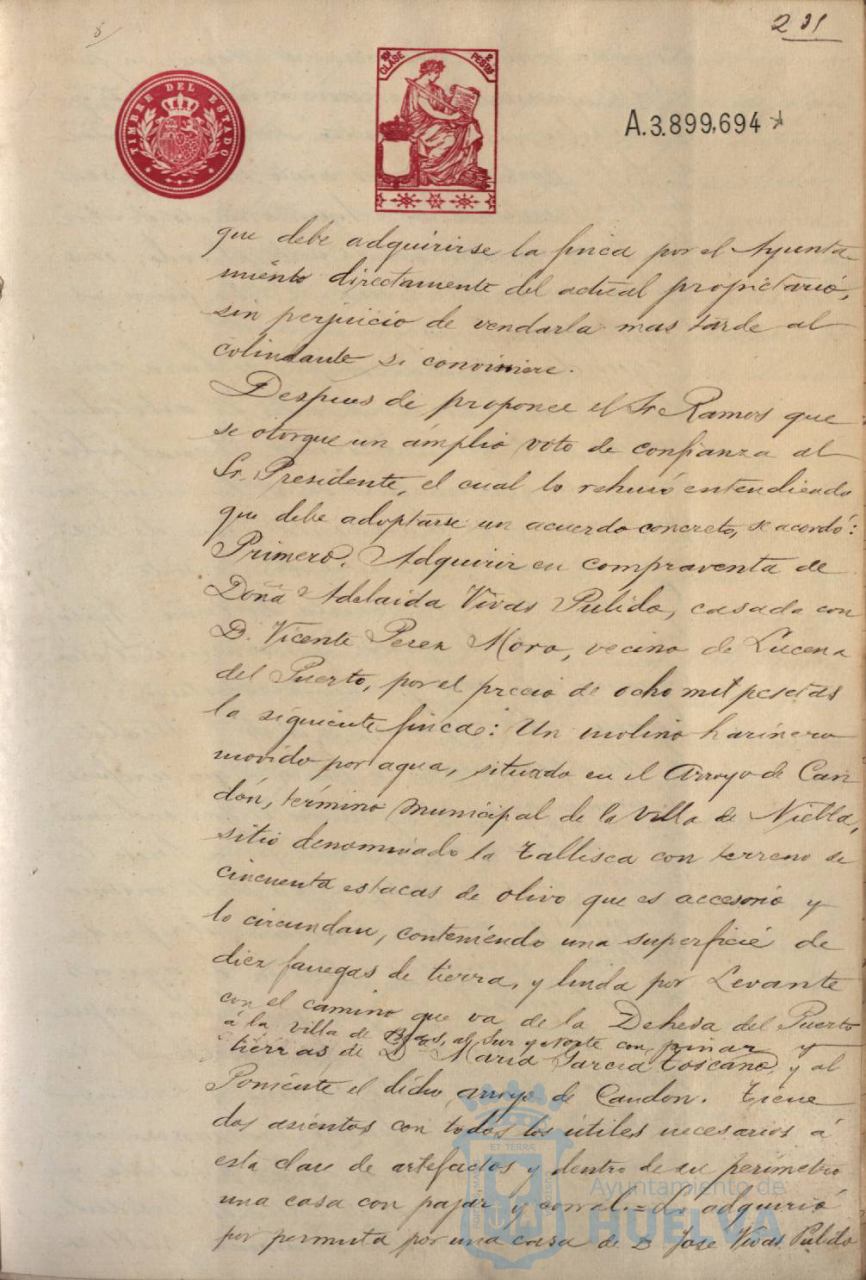 8
231
TIMBRE DEL ESTADO
CLASE
PESETAS
A.3.899,694
que debe adquirirse la finca por el Ayunta-
miento directamente del actual propietario,
sin perjuicio de vendarla mas tarde al
colindante si conviniere.
Despues de proponce el Sr Ramos que
se otorgue un ámplio voto de confianza al
Sr. Presidente, el cual lo rehusó entendiendo
que debe adoptarse un acuerdo concreto, se acordó:
Primero. Adquirir en compraventa de
Doña Adelaida Vivas Pulido, casada con
D. Vicente Perez Moro, vecino de Lucena
del Puerto, por el precio de ocho mil pesetas
la siguiente finca: Un molino harinero
movido por agua, situado en el Arroyo de Can
dón, término municipal de la Villa de Niebla,
sitio denominado la Tallisca con terreno de
cincuenta estacas de olivo que es accesorio y
lo circundan, conteniendo una superficie de
diez fanegas de tierra, y linda por Levante
con el camino que va de la Dehesa del Puerto
á la villa de Beas, al Sur y Norte con pinar y
tierras de Dª Maria Garcia Toscano, y al
Poniente el dicho arroyo de Candon. Tiene
dos asientos con todos los útiles necesarios á
esta clase de artefactos y dentro de su perimetro
una casa con pajar y corral.=Lo adquirió
por permuta por una casa de D. José Vivas Pulido
Ayuntamiento de
HUELVA